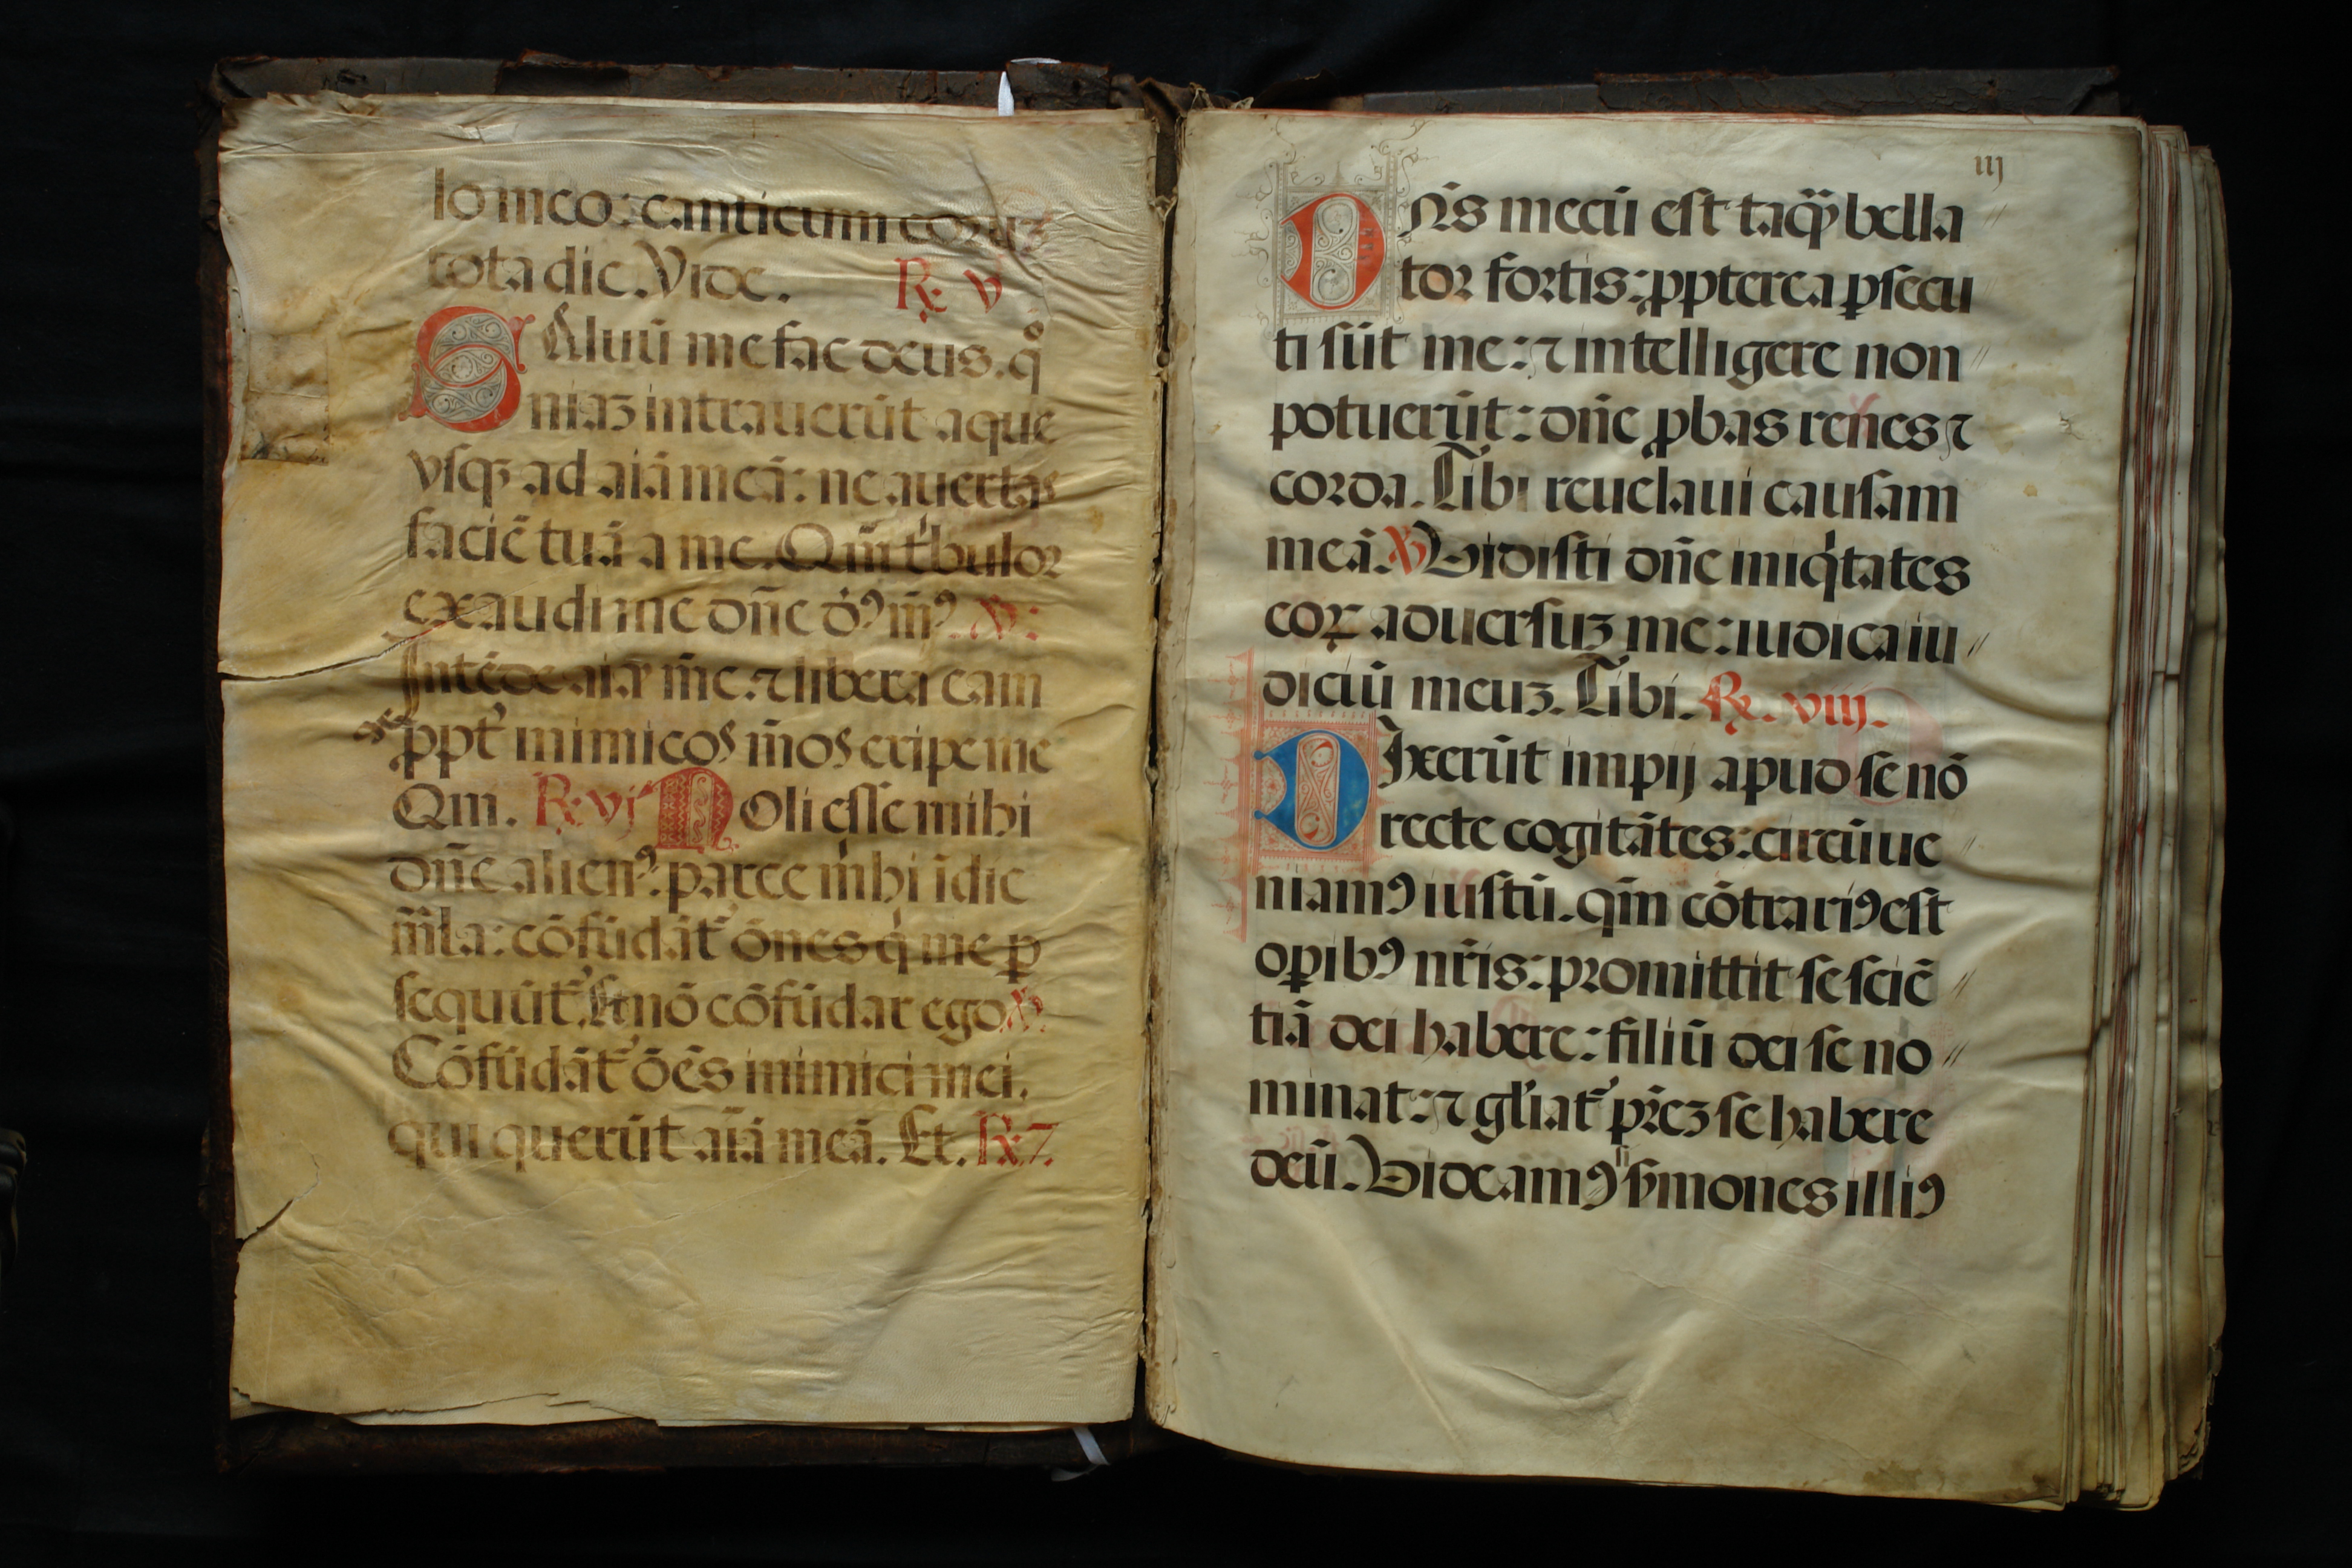 lo meo: canticum eoruʒ
tota die. Vide. ℞. v
SAluū me fac deus. qͦ
niaʒ intrauerūt aque
vſqʒ ad aiā meā: ne auertas
faciē tuā a me. Qm̄ tͥbulor
exaudi me dn̄e veloꝰ m̄ꝰ. ℣:
Intēde aīe m̄e. ⁊ libera eam
ꝓpt̓ inimicos m̄os eripe me
Qm̄. ℞. vj Noli eſſe mihi
dn̄e alienꝰ. parce mͥhi ī die
m̄la: cōfūdāt̓ ōnes qͥ me ꝑ
ſequūt̓. Et nō cōfūdar ego ℣.
Cōfūdāt̓ ōēs inimici mei.
qui querūt aīā meā. Et. ℞. 7.
iij
Dn̄s mecū eſt tāqꝫ bella
tor fortis: ꝓpterea ꝑſecu
ti ſūt me: ⁊ intelligere non
potuerūt: dn̄e ꝓbas renes ⁊
corda. Tibi reuelaui cauſam
meā. ℣ Vidiſti dn̄e iniqͥtates
eoꝝ aduerſuʒ me: iudica iu
diciū meuʒ. Tibi. ℞. viij.
Dixerūt impij apud ſe nō
recte cogitātes: circūue
niamꝰ iuſtū. qm̄ cōtrariꝰ eſt
oꝑibꝰ nr̄is: promittit ſe ſciē
tiā dei habere: filiū dei ſe no
minat: ⁊ gl̓iat̓ pr̄eʒ ſe habere
deū. Videamꝰ ſi ẜmones illiꝰ